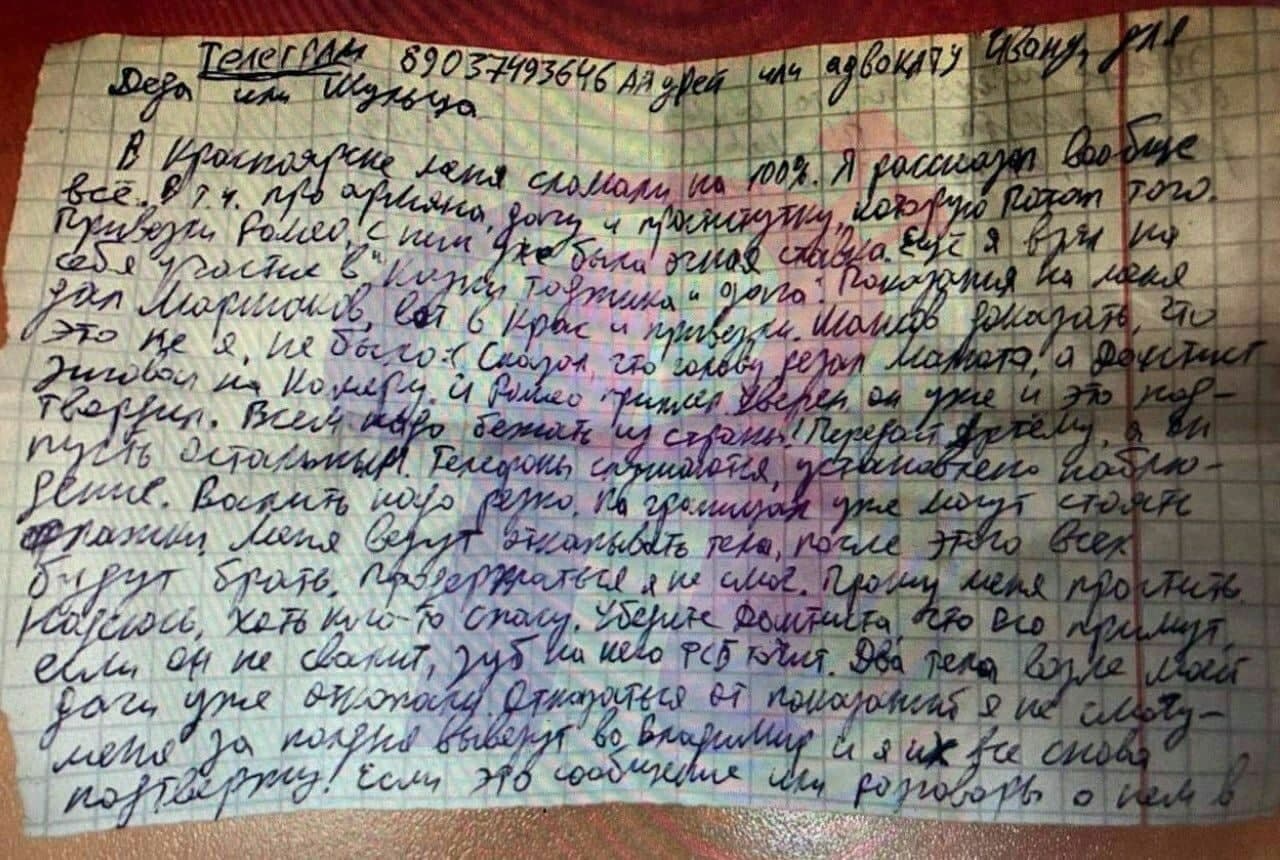 Телеграм 89037493646 Андрей или адвокату Ивану, для
Деда или Шульца
В Красноярске меня сломали на 100%. Я рассказал вообще
всё. В т.ч. про армяна, дачу и проститутку, которую потом того.
Привезли Ромео, с ним уже была очная ставка. Ещё я взял на
себя участие в "Казни таджика и дага". Показания на меня
дал Маршаков, вот в Крас и привезли. Шансов доказать, что
это не я, не было :( Сказал, что голову резал а
на камеру. И Ромео Уверен он уже и это под-
твердил. Всем надо бежать из страны! Передай Артёму, а он
пусть остальным! Телефоны слушаются, установлено наблю-
дение. Валить надо резко. На границах уже могут стоять
Меня везут откапывать тела, после этого всех
будут брать. Продержаться я не смог. Прошу меня простить.
Надеюсь, хоть кого-то спасу. Уберите его примут,
если он не свалит, зуб на него ФСБ точит. Два тела возле моей
дачи уже откопали. Отказаться от показаний я не смогу –
меня за полдня вывезут во Владимир и я их все снова
подтвержу! Если это сообщение или разговоры о нем в